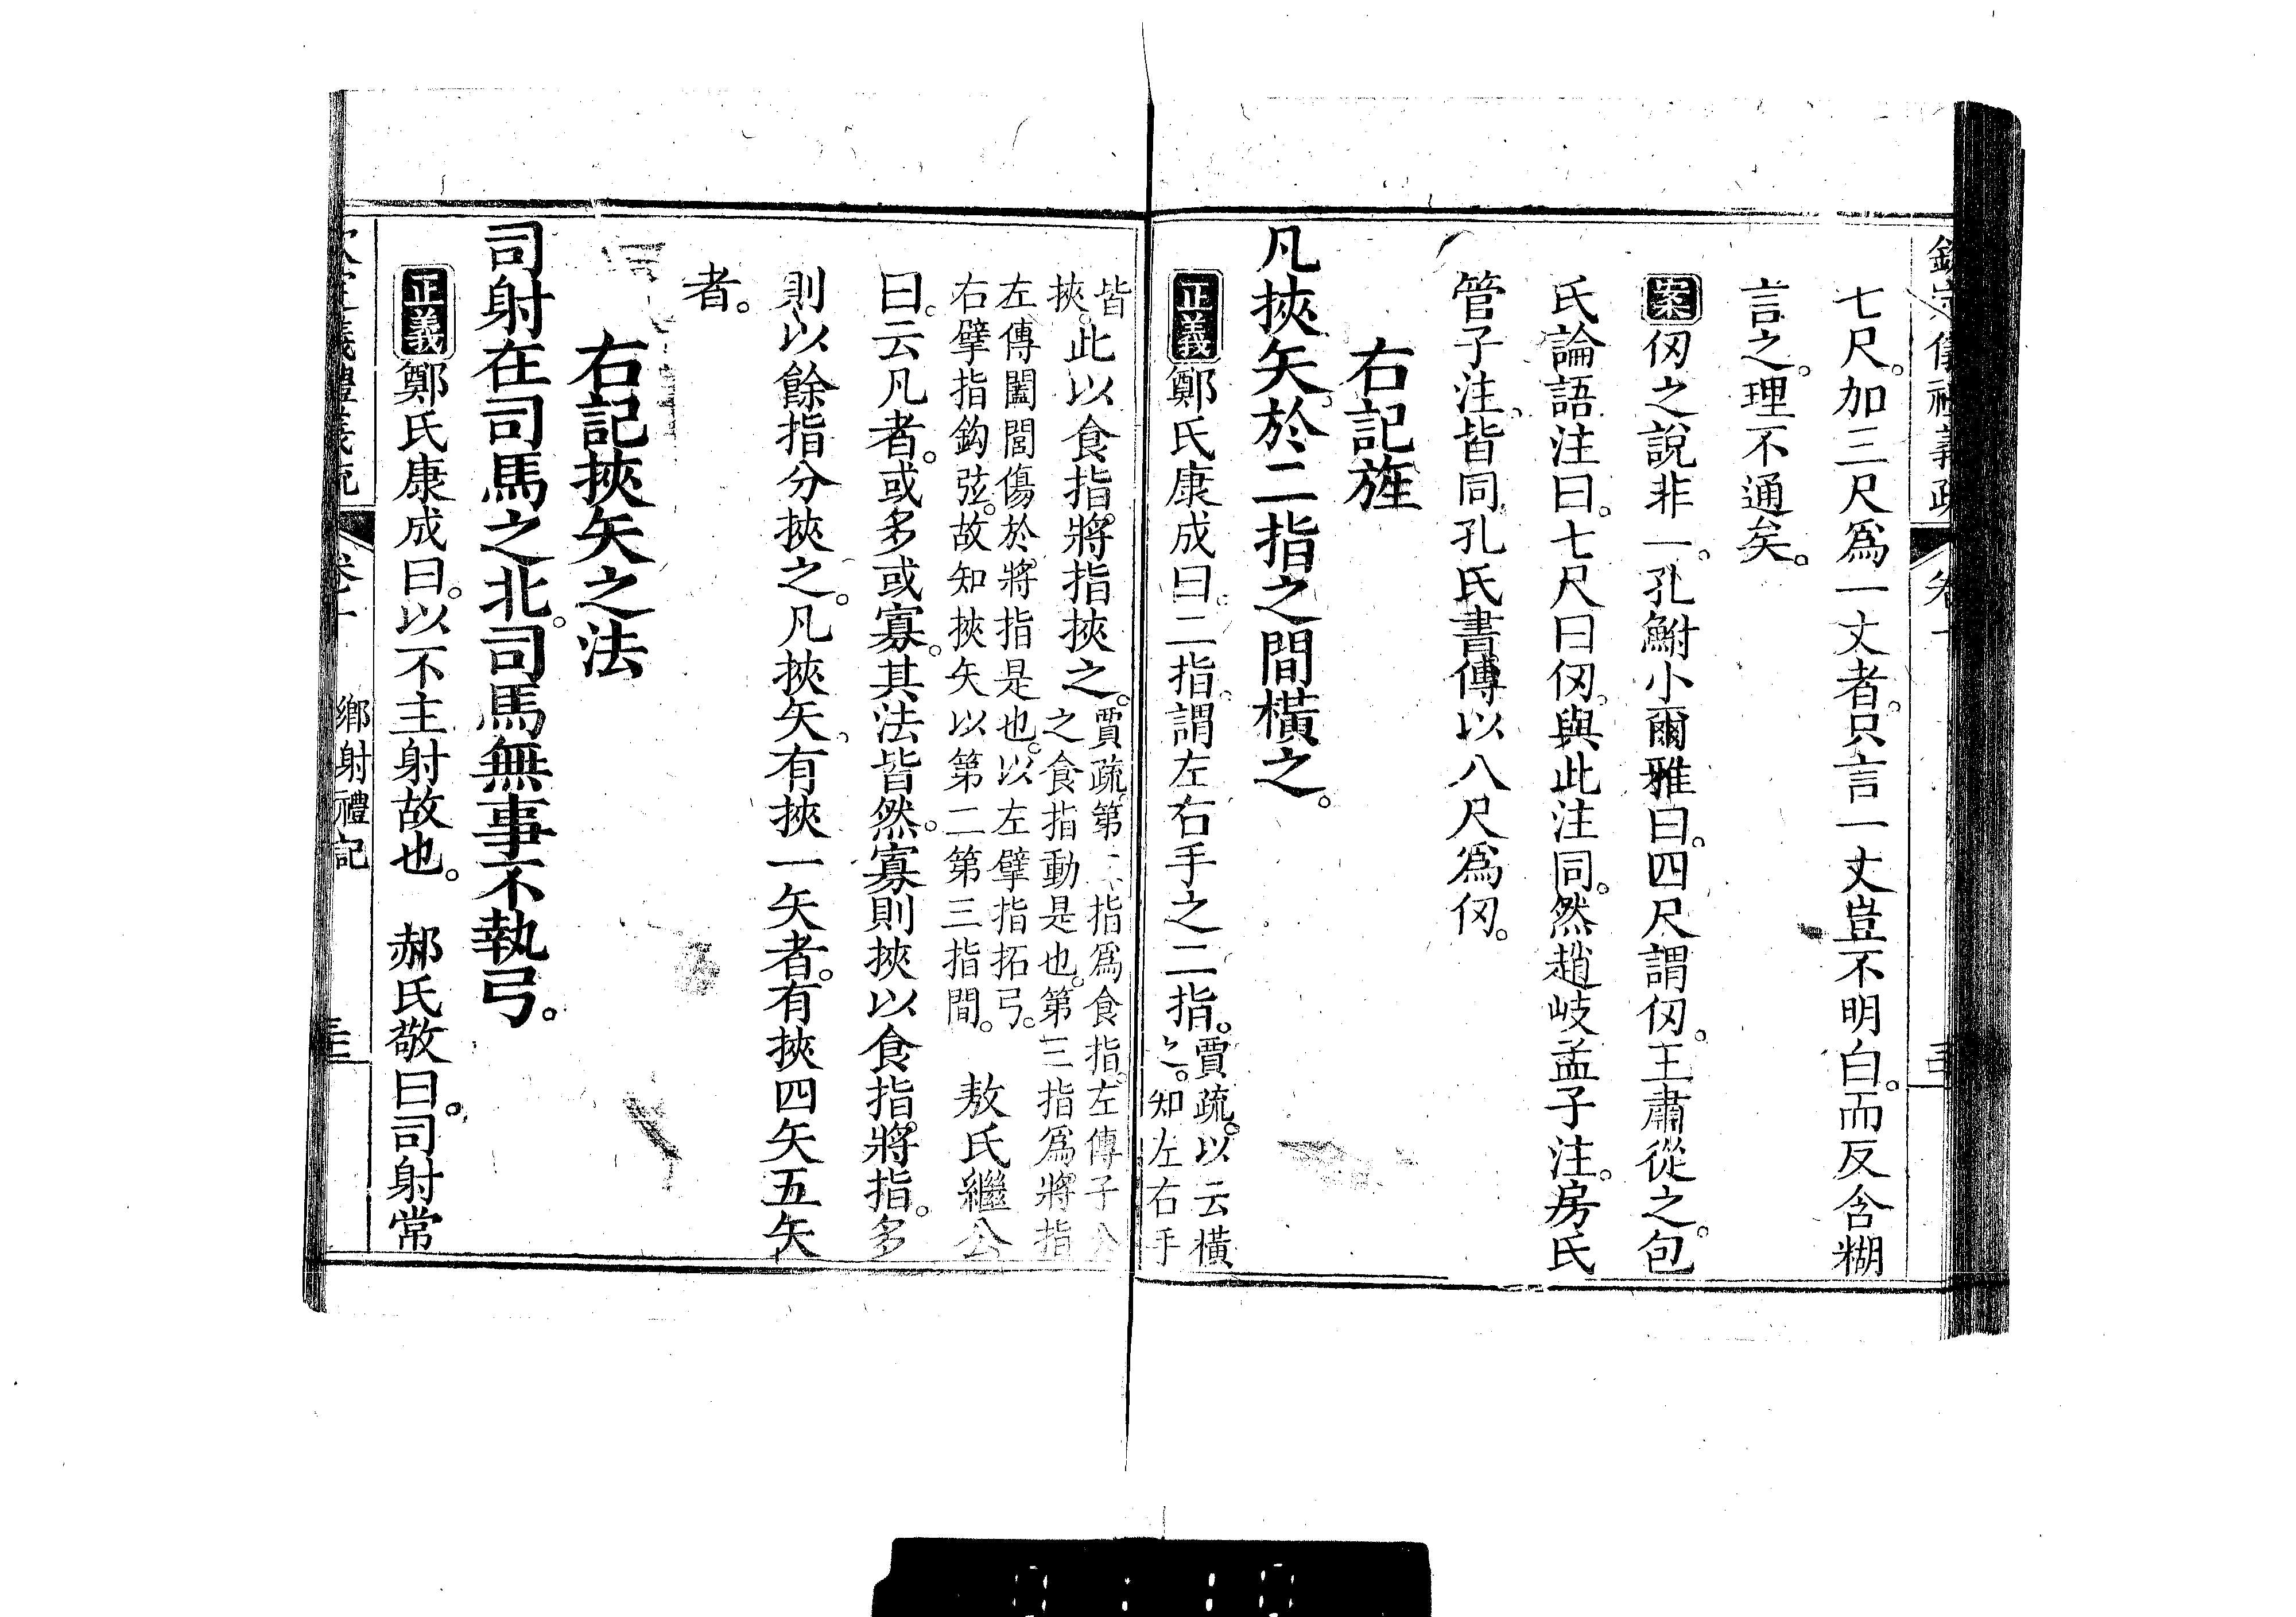 七尺。加三尺爲一丈者。只言一丈豈不明白。而反含糊
言之。理不通矣。
案仞之說非一。孔鮒小爾雅曰。四尺謂仞。王肅從之。包
氏論語注曰。七尺曰仞。與此注同。然趙岐孟子注。房氏
管子注。皆同孔氏書傳以八尺爲仞。
右記旌
凡挾矢。於二指之間橫之。
正義鄭氏康成曰。二指。謂左右手之二指。
賈疏。以云橫
之。知左右手
皆
挾。
此以食指。將指挾之。
賈疏。第二指爲食指。左傳子公
之食指動是也。第三指爲將指
左傳闔閭傷於。將指是也。以左擘指拓弓。
右擘指鈎弦。故知挾矢以第二第三指間。
敖氏繼公
曰。云凡者。或多或寡。其法皆然。寡則挾以食指。將指。多
則以餘指分挾之。凡挾矢。有挾一矢者。有挾四矢五矢
者。
右記挾矢之法
司射在司馬之北。司馬無事不執弓。
正義鄭氏康成曰。以不主射故也。 郝氏敬曰。司射常
鄉射禮記